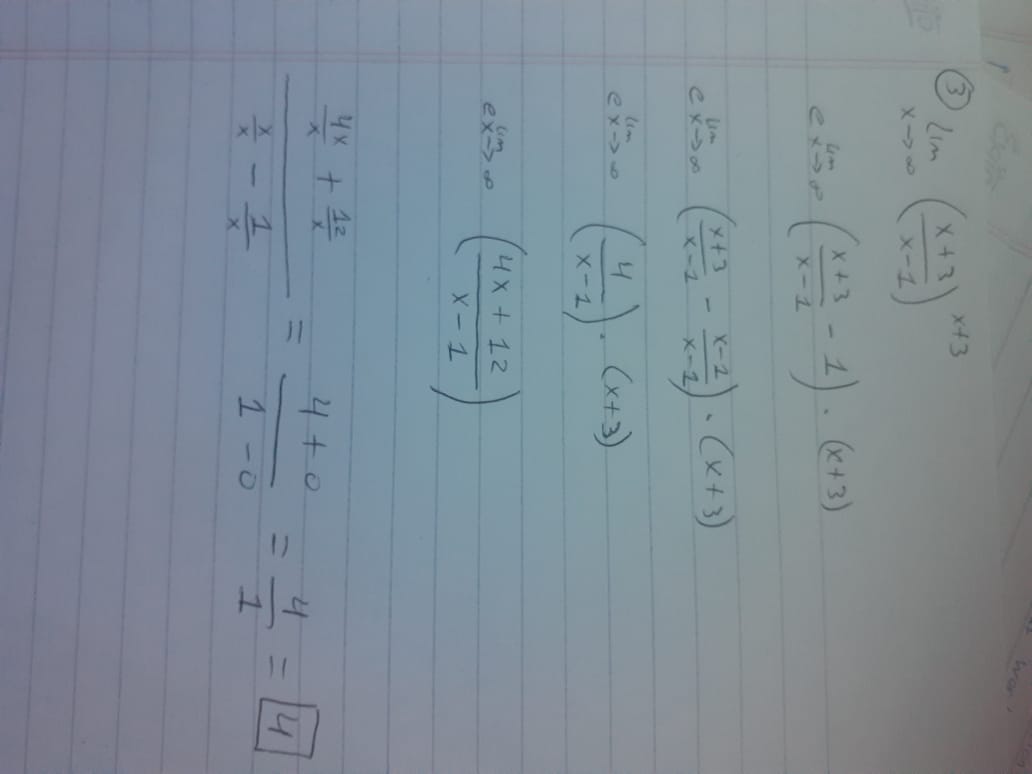 wor.
③ lim x→∞ (x+3 / x-1)^x+3
e lim x→∞ (x+3 / x-1 - 1) · (x+3)
e lim x→∞ (x+3 / x-1 - x-1 / x-1) · (x+3)
e lim x→∞ (4 / x-1) · (x+3)
e lim x→∞ (4x + 12 / x-1)
4x/x + 12/x / x/x - 1/x = 4+0 / 1-0 = 4/1 = 4